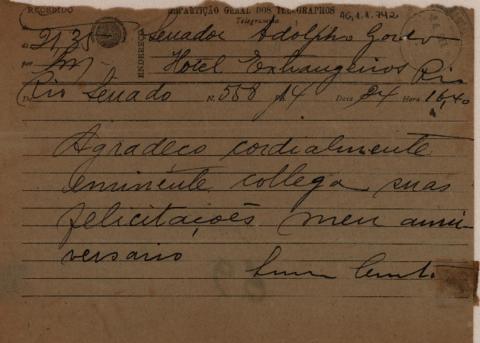 RECEBIDO REPARTIÇÃO GERAL DOS TELEGRAPHOS AG,1.1.742
Telegramma
21,35 ENDEREÇO Senador Adolpho
Hotel Extrangeiros Rio
De Rio Senado N. 558 Pls. 14 Data 24 Hora 16,40
Agradeço cordialmente
eminente collega suas
felicitações meu anni-
versario